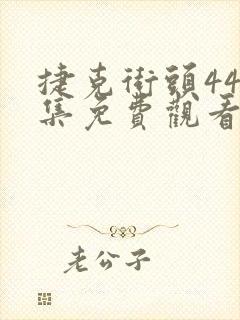 捷克街頭44
集免費觀看
老公子